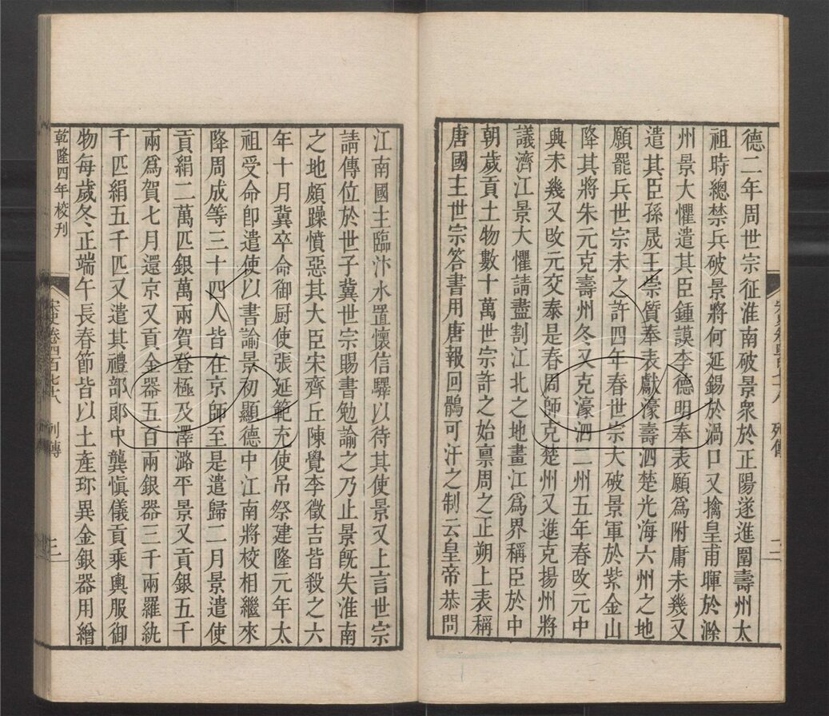 德二年周世宗征淮南破景衆於正陽遂進圍壽州太
祖時總禁兵破景將何延錫於渦口又擒皇甫暉於滁
州景大懼遣其臣鍾謨李德明奉表願爲附庸未幾又
遣其臣孫晟王崇質奉表獻濠壽泗楚光海六州之地
願罷兵世宗未之許四年春世宗大破景軍於紫金山
降其將朱元克壽州冬又克濠泗二州五年春攺元中
興未幾又攺元交泰是春周師克楚州又進克揚州將
議濟江景大懼請盡割江北之地畫江爲界稱臣於中
朝歲貢土物數十萬世宗許之始禀周之正朔上表稱
唐國主世宗答書用唐報回鶻可汗之制云皇帝恭問
江南國主臨汴水置懷信驛以待其使景又上言世宗
請傳位於世子冀世宗賜書勉諭之乃止景旣失淮南
之地頗躁憤惡其大臣宋齊丘陳覺李徵吉皆殺之六
年十月冀卒命御厨使張延範充使吊祭建隆元年太
祖受命卽遣使以書諭景初顯德中江南將校相繼來
降周成等三十四人皆在京師至是遣歸二月景遣使
貢絹二萬匹銀萬兩賀登極及澤潞平景又貢銀五千
兩爲賀七月還京又貢金器五百兩銀器三千兩羅紈
千匹絹五千匹又遣其禮部郎中龔愼儀貢乘輿服御
物每歲冬正端午長春節皆以土產珍異金銀器用繒
乾隆四年校刊
列傳
三